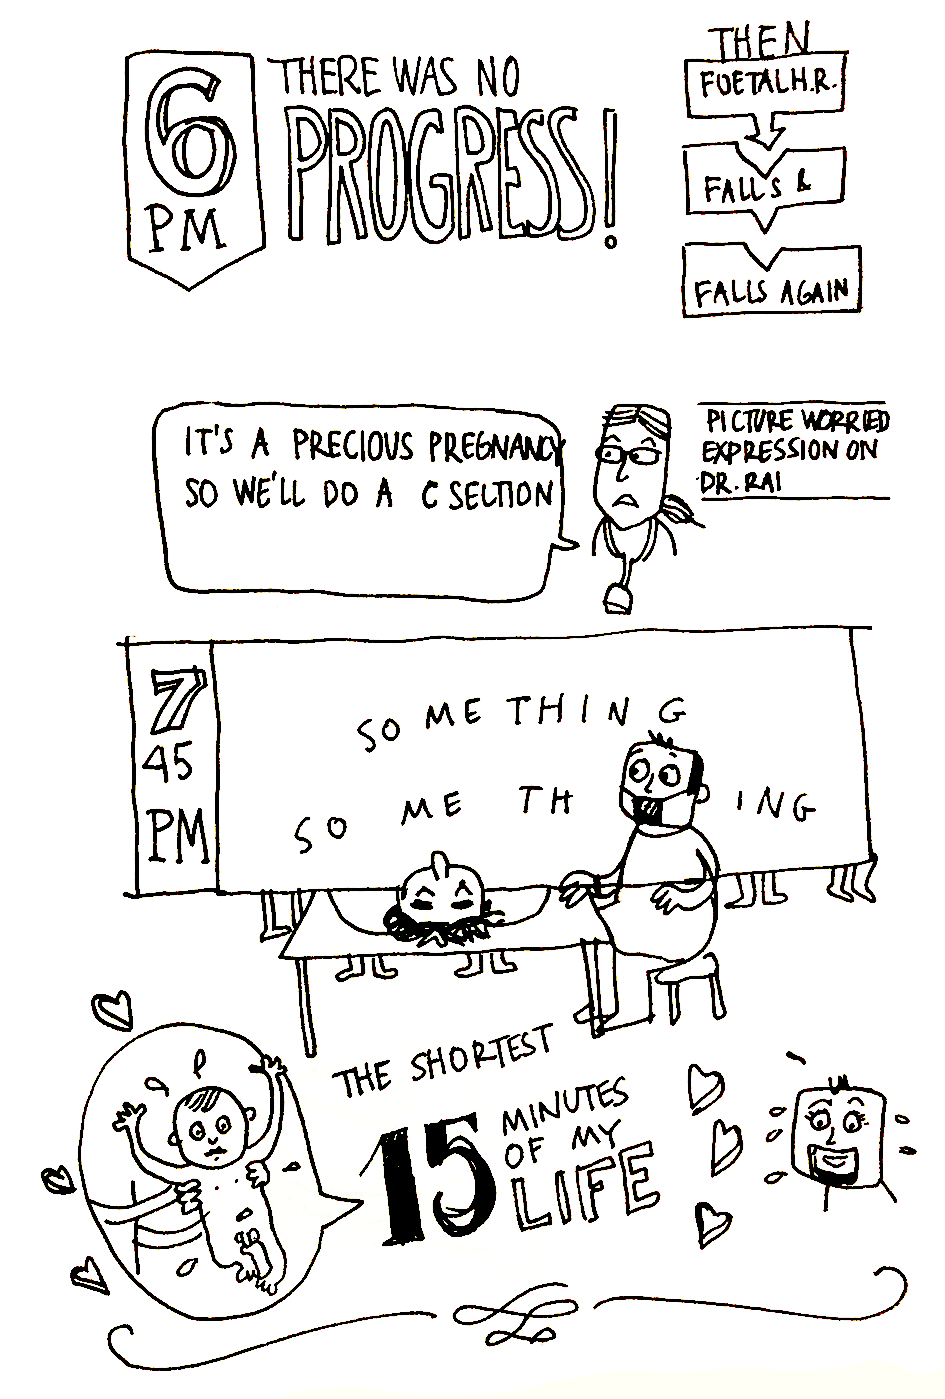 6
PM
THERE WAS NO
PROGRESS!
THEN
FOETAL H.R.
FALLS &
FALLS AGAIN
IT'S A PRECIOUS PREGNANCY
SO WE'LL DO A C SELTION
PICTURE WORRIED
EXPRESSION ON
DR. RAI
7
45
PM
SOMETHING
SOME THING
THE SHORTEST
15 MINUTES
OF MY
LIFE